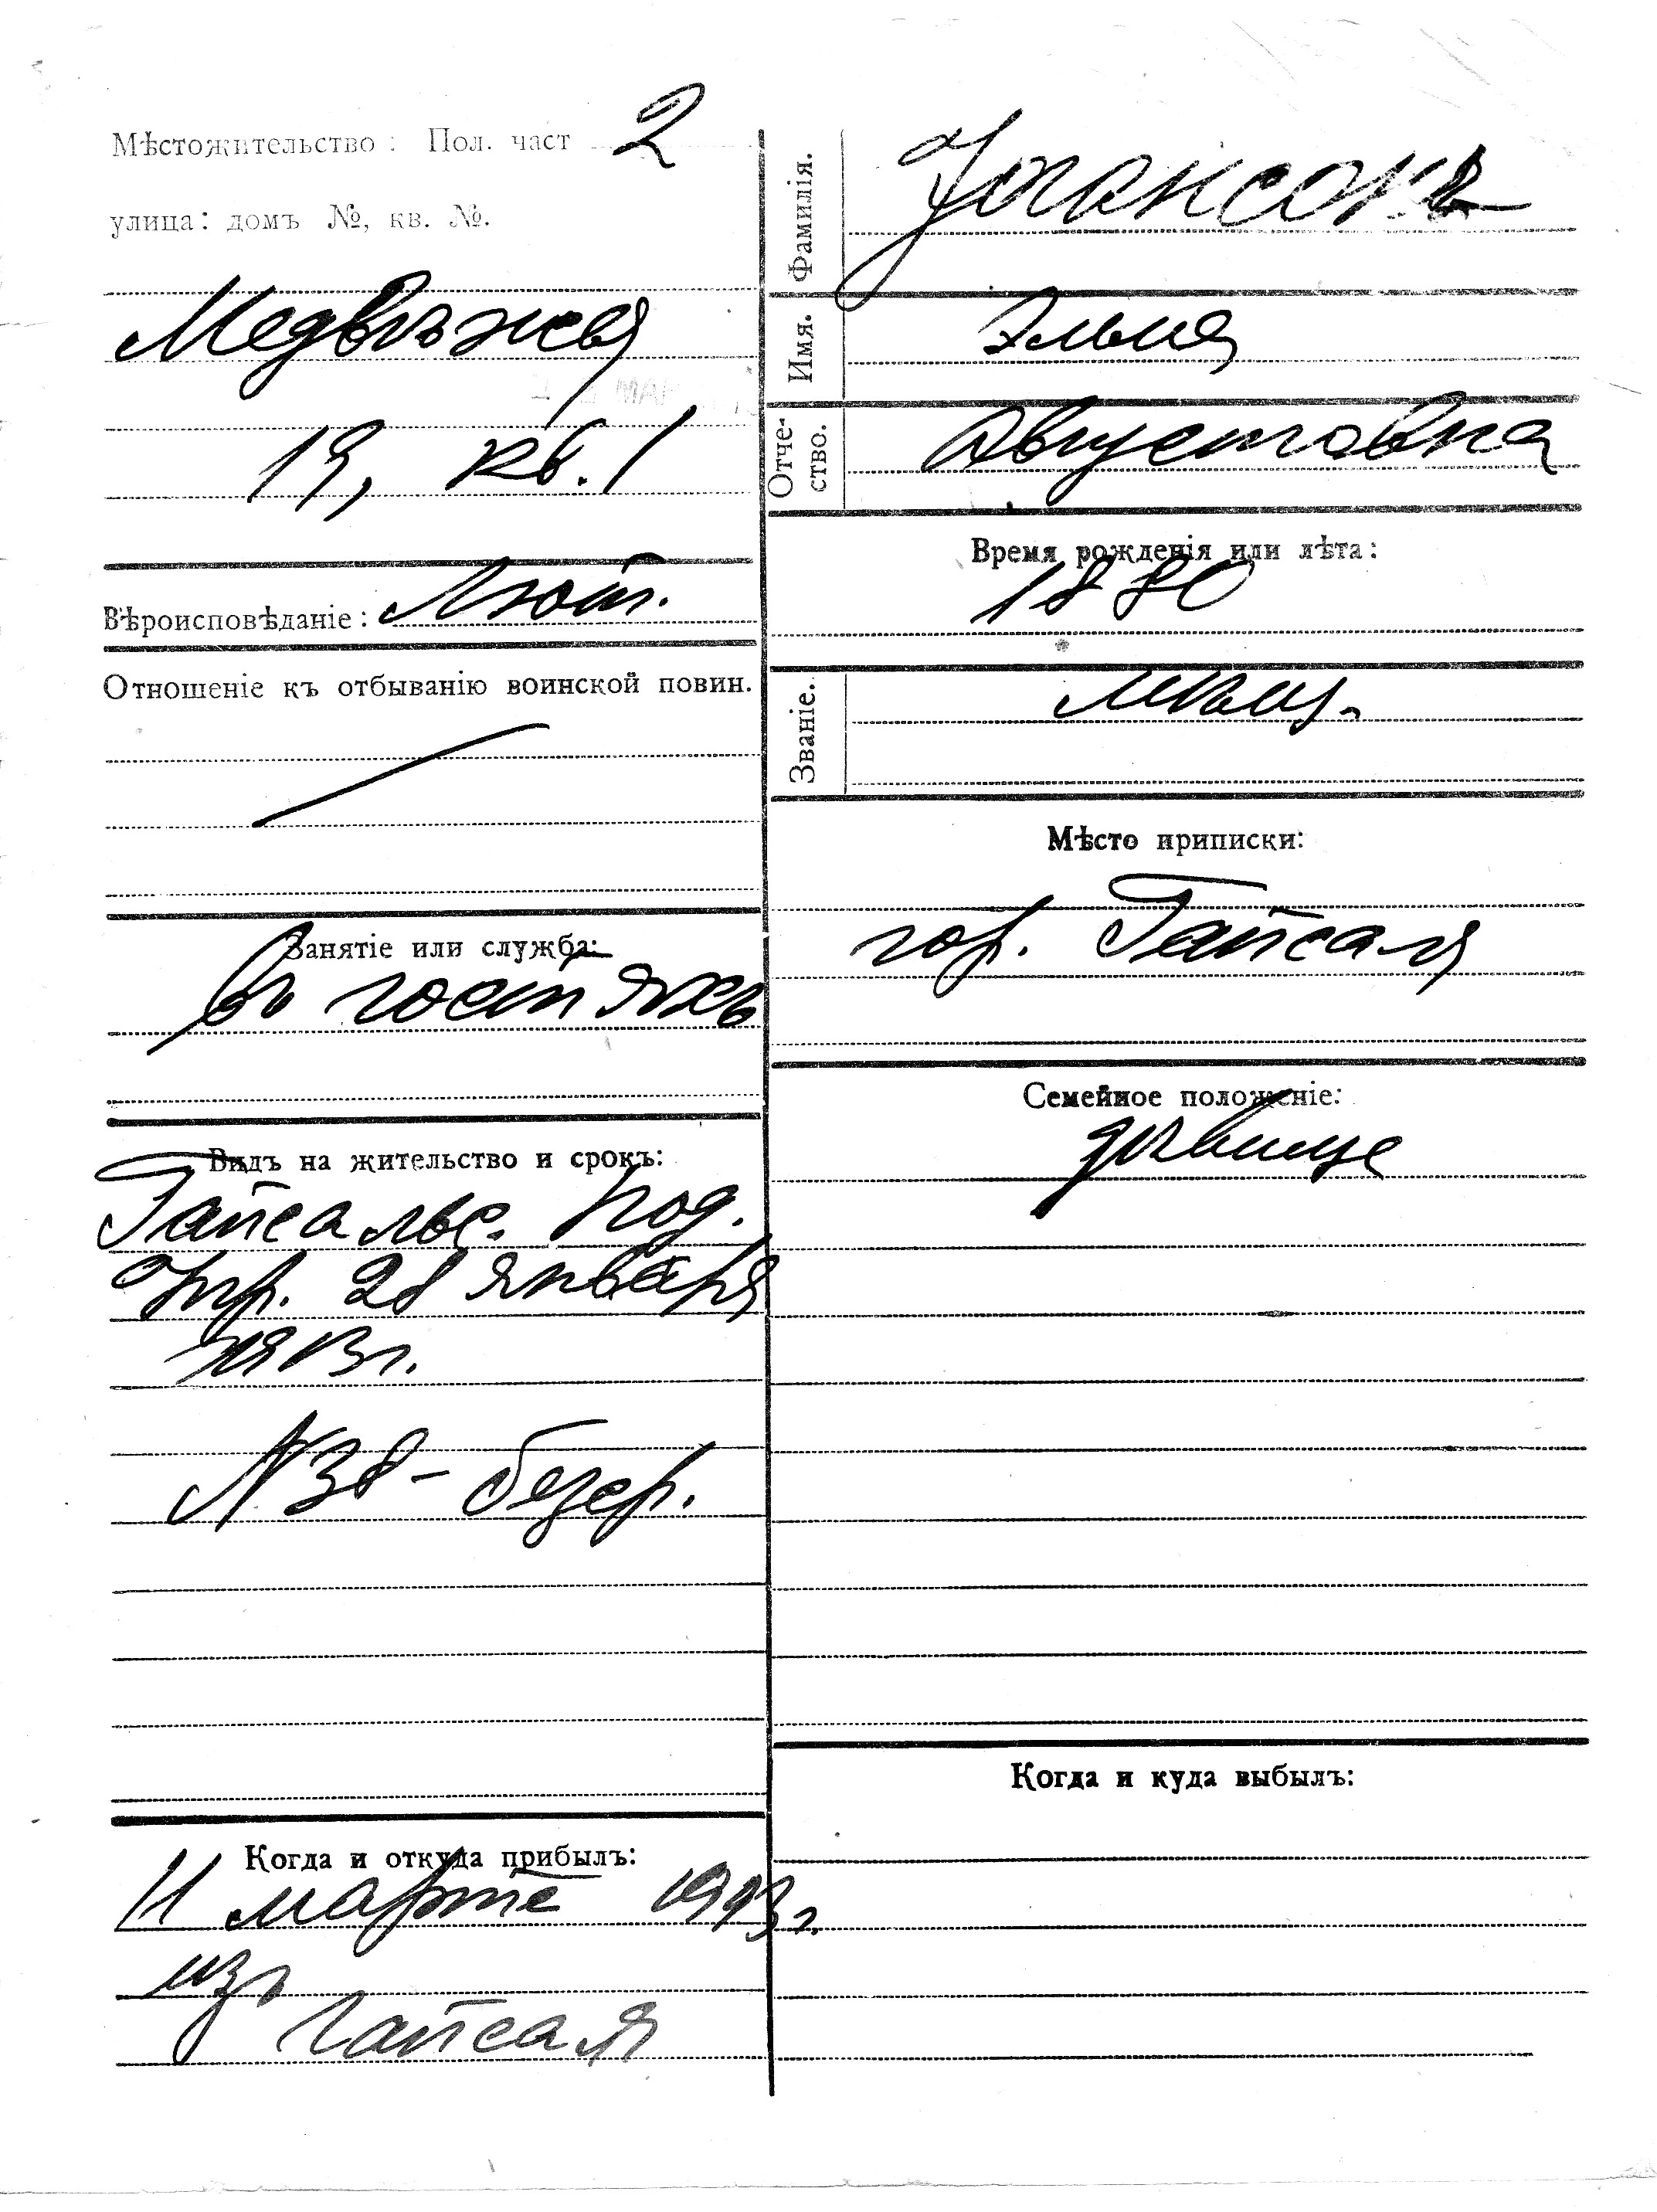 Мѣстожительство: Пол. част 2
улица: домъ №, кв. №.
Медвѣжья
19, кв. 1
Вѣроисповѣданіе: Лют.
Отношеніе къ отбыванію воинской повин.
Занятіе или служба:
въ гостяхъ
Видъ на жительство и срокъ:
Гапсальс. Гор.
Упр. 28 января
1913 г.
№ 38 - безср.
Когда и откуда прибылъ:
11 марта 1913 г.
изъ
Гапсаля
Фамилія.
Иогансонъ
Имя.
Эльма
Отче-
ство.
Августовна
Время рожденія или лѣта:
1880
Званіе.
мѣщ.
Мѣсто приписки:
гор. Гапсаля
Семейное положеніе:
дѣвица
Когда и куда выбылъ: